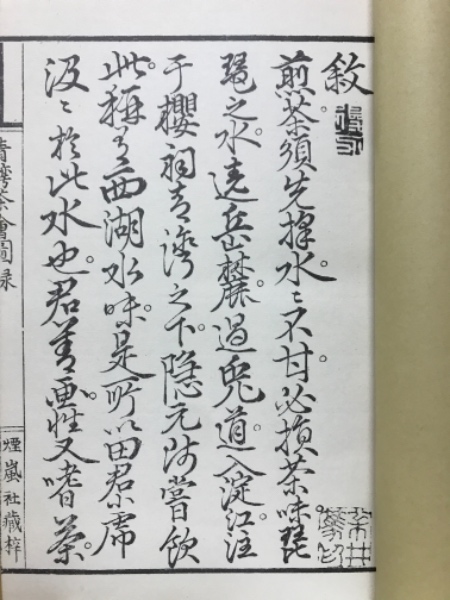 敘
煎茶須先擇水。〻不甘。必損茶味。琵
琶之水。遶岳麓。過兎道。入淀江。注
于櫻祠青灣之下。隠元師嘗飲
此。稱有西湖水味。是所以田君小虎
汲〻於此水也。君善画。性又嗜茶。
青灣茶會圖録
煙嵐社藏梓